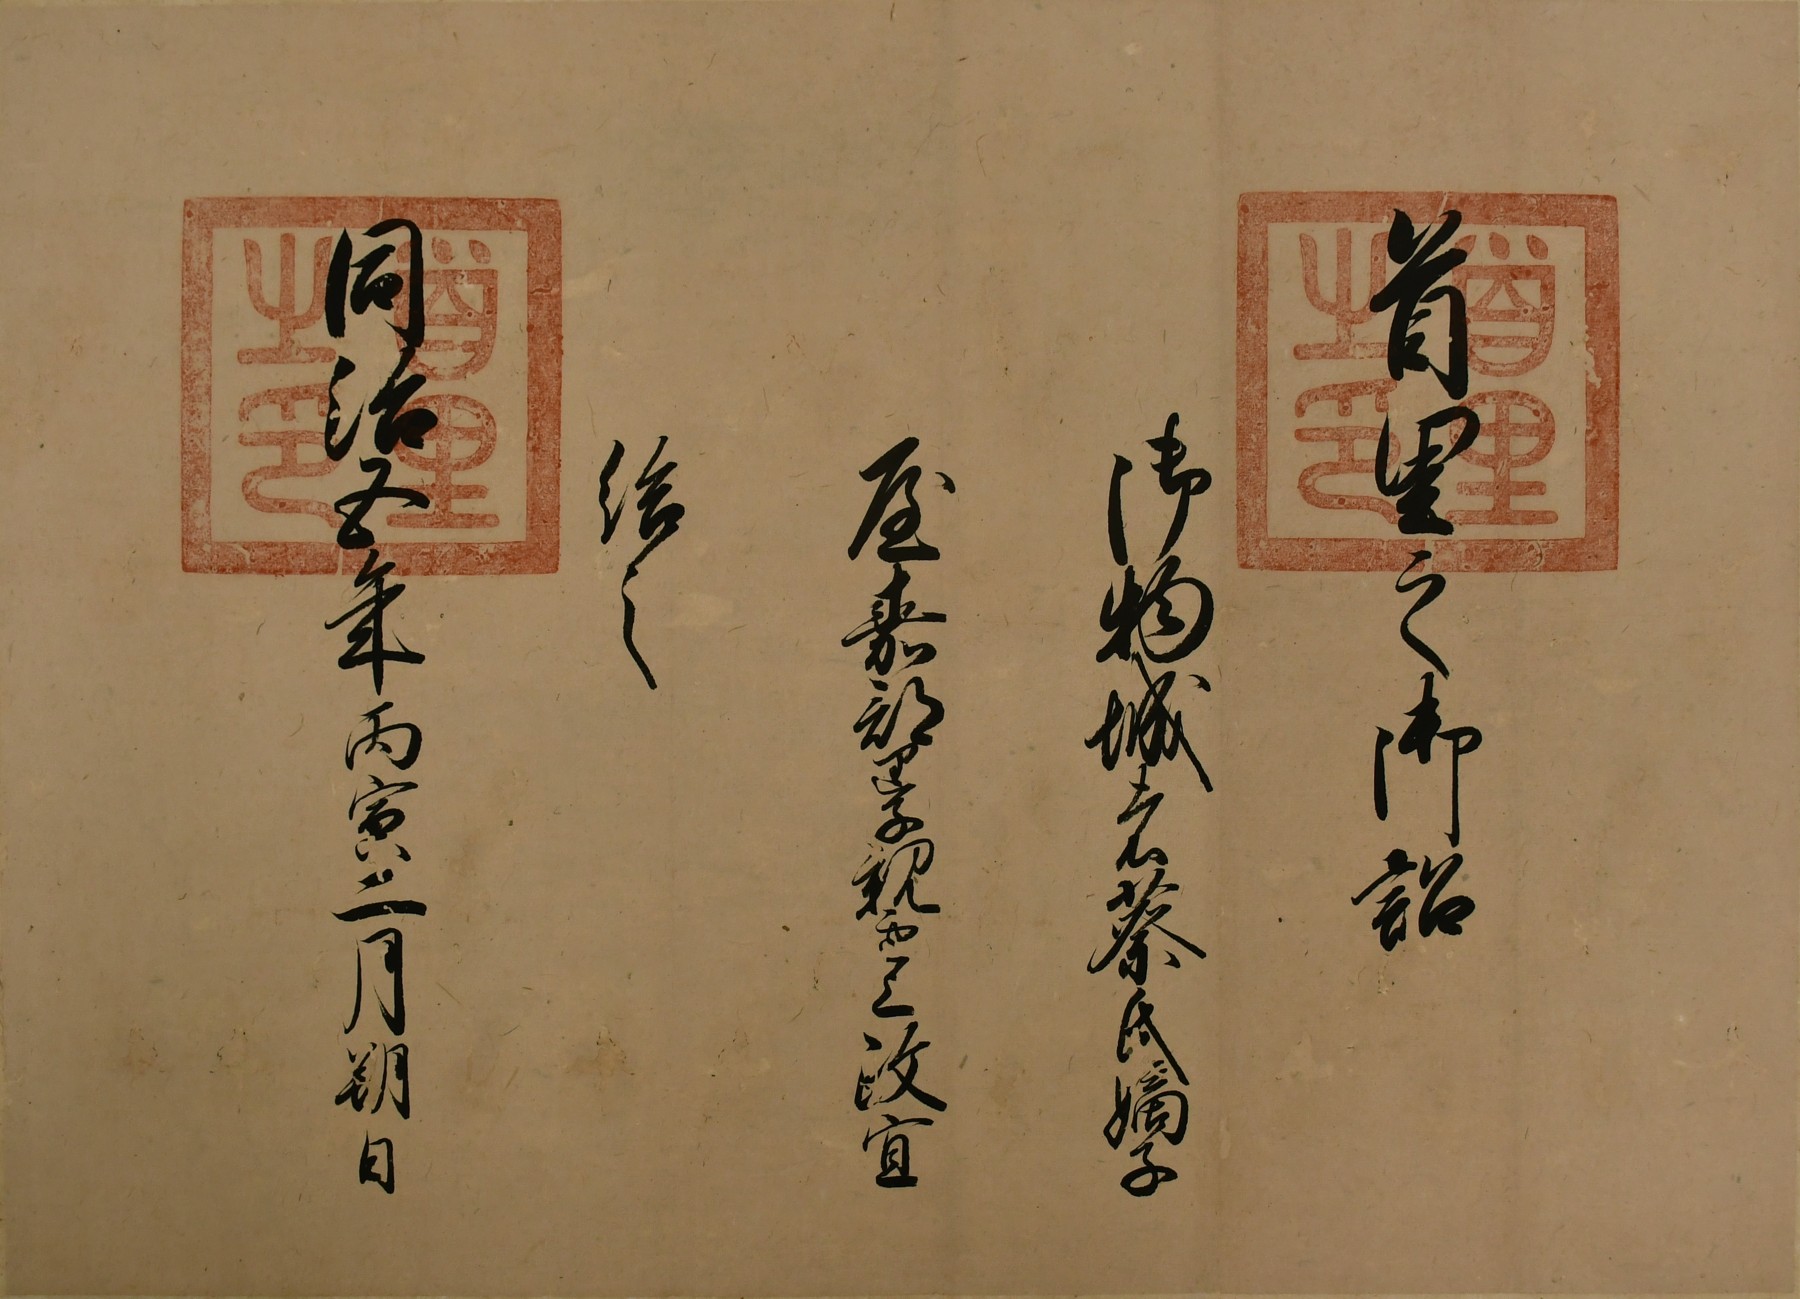 首里之御詔
御物城者蔡氏嫡子
屋嘉部里之子親雲上政宜
給之
同治五年丙寅二月朔日
首里之印
首里之印